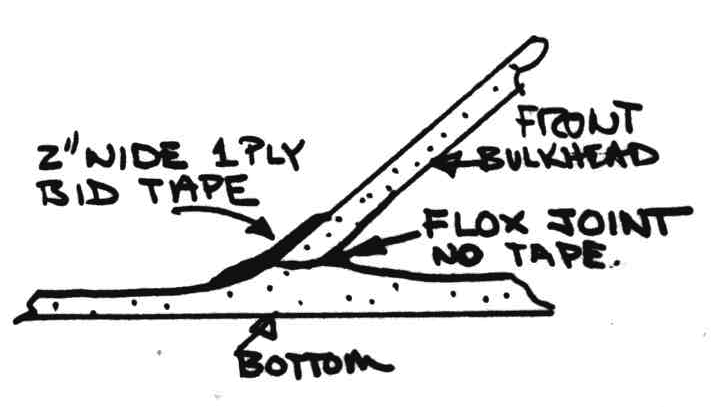 2" WIDE 1 PLY
BID TAPE
FRONT
BULKHEAD
FLOX JOINT
NO TAPE.
BOTTOM